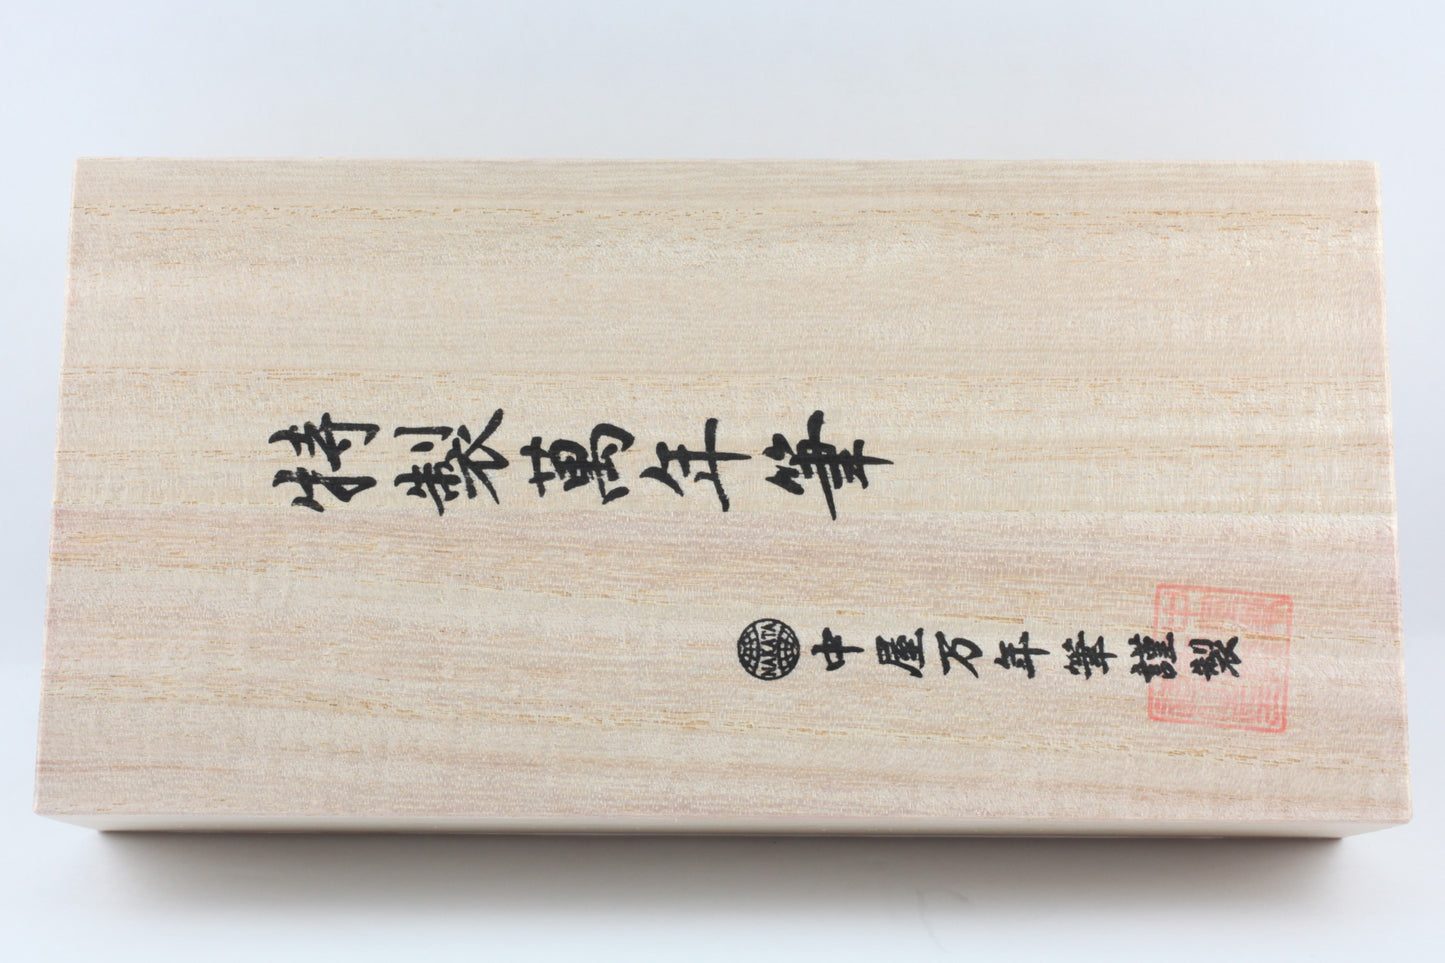 特製萬年筆
NAKATA
中屋万年筆謹製